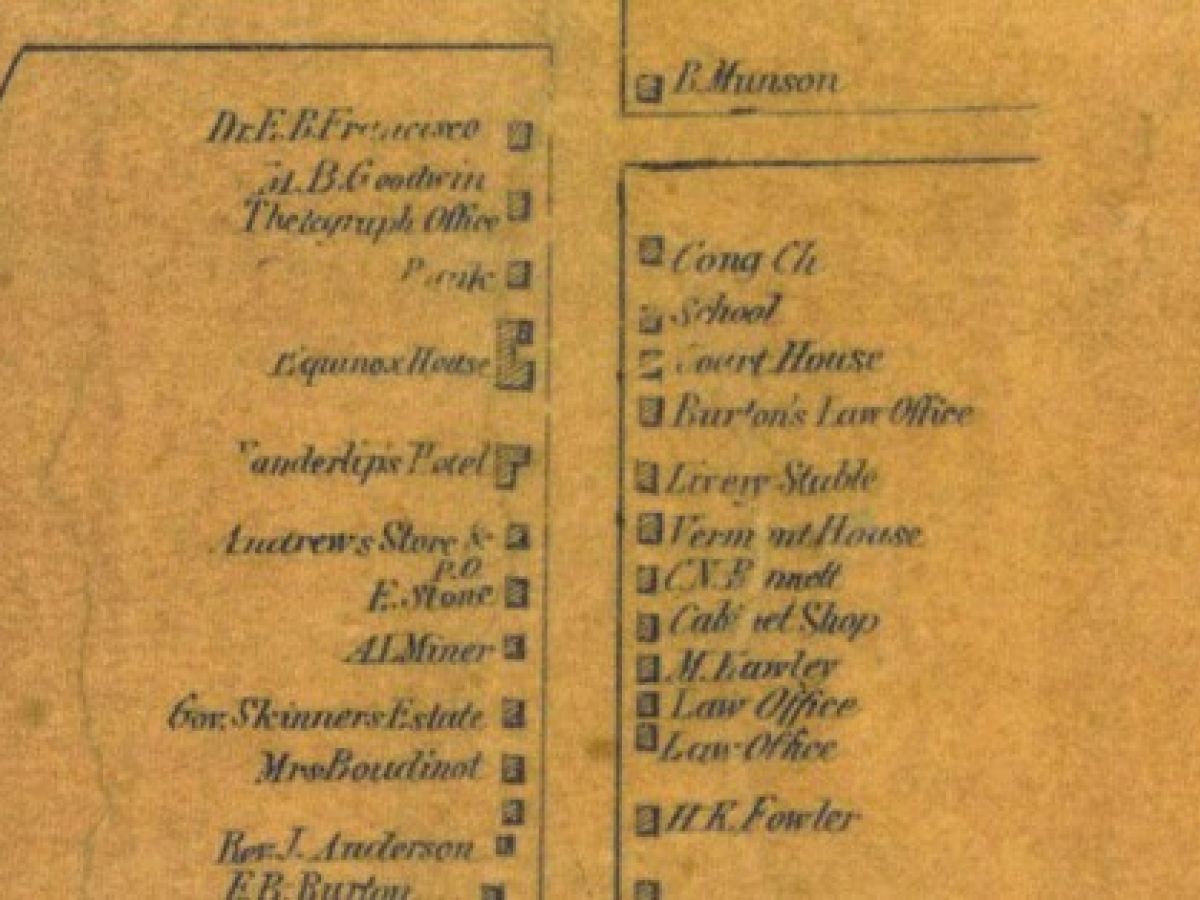 B. Munson
Dr. E. B. Francisco
B. Goodwin
Thelegraph Office
Equinox House
Vanderlip's Hotel
Andrews Store &
P.O
E. Stone
A.L. Miner
Gov. Skinners Estate
Mrs Boudinot
Rev. J. Anderson
E. B. Burton
Cong Ch
School
Court House
Burton's Law Office
Livery Stable
Vermont House
C. N. B nnett
Cabinet Shop
M. Hawley
Law Office
Law Office
H. K. Fowler